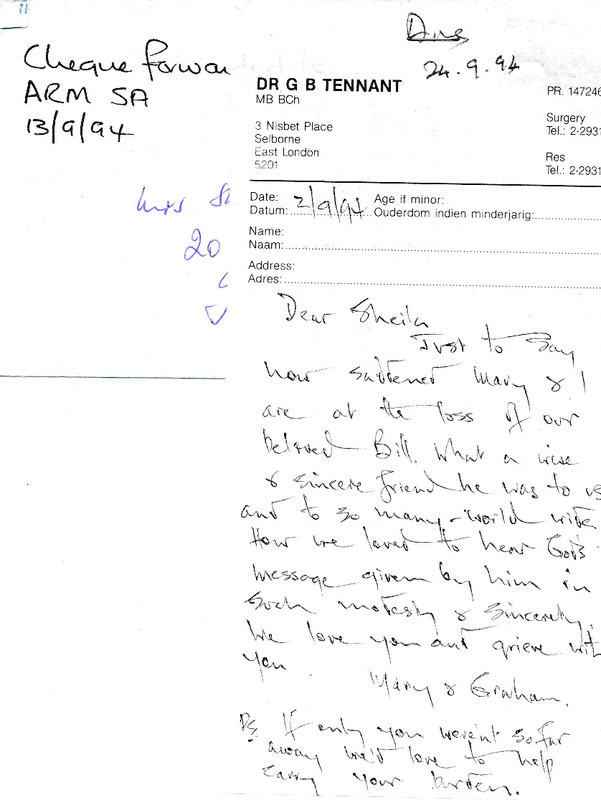 Cheque forwar
ARM SA
13/9/94
Mrs
20
24.9.94
DR G B TENNANT
MB BCh
PR. 147246
3 Nisbet Place
Selborne
East London
5201
Surgery
Tel.: 2-2931
Res
Tel.: 2-2931
Date: Age if minor:
Datum: 2/9/94 Ouderdom indien minderjarig:
Name:
Naam:
Address:
Adres:
Dear Sheila
Just to say
how saddened Mary & I
are at the loss of our
beloved Bill. What a wise
& sincere friend he was to us
and to so many - world wide.
How we loved to hear God's
message given by him in
such modesty & sincerity.
We love you and grieve with
you
Mary & Graham.
Ps. If only you weren't so far
away we'd love to help
carry your burden.